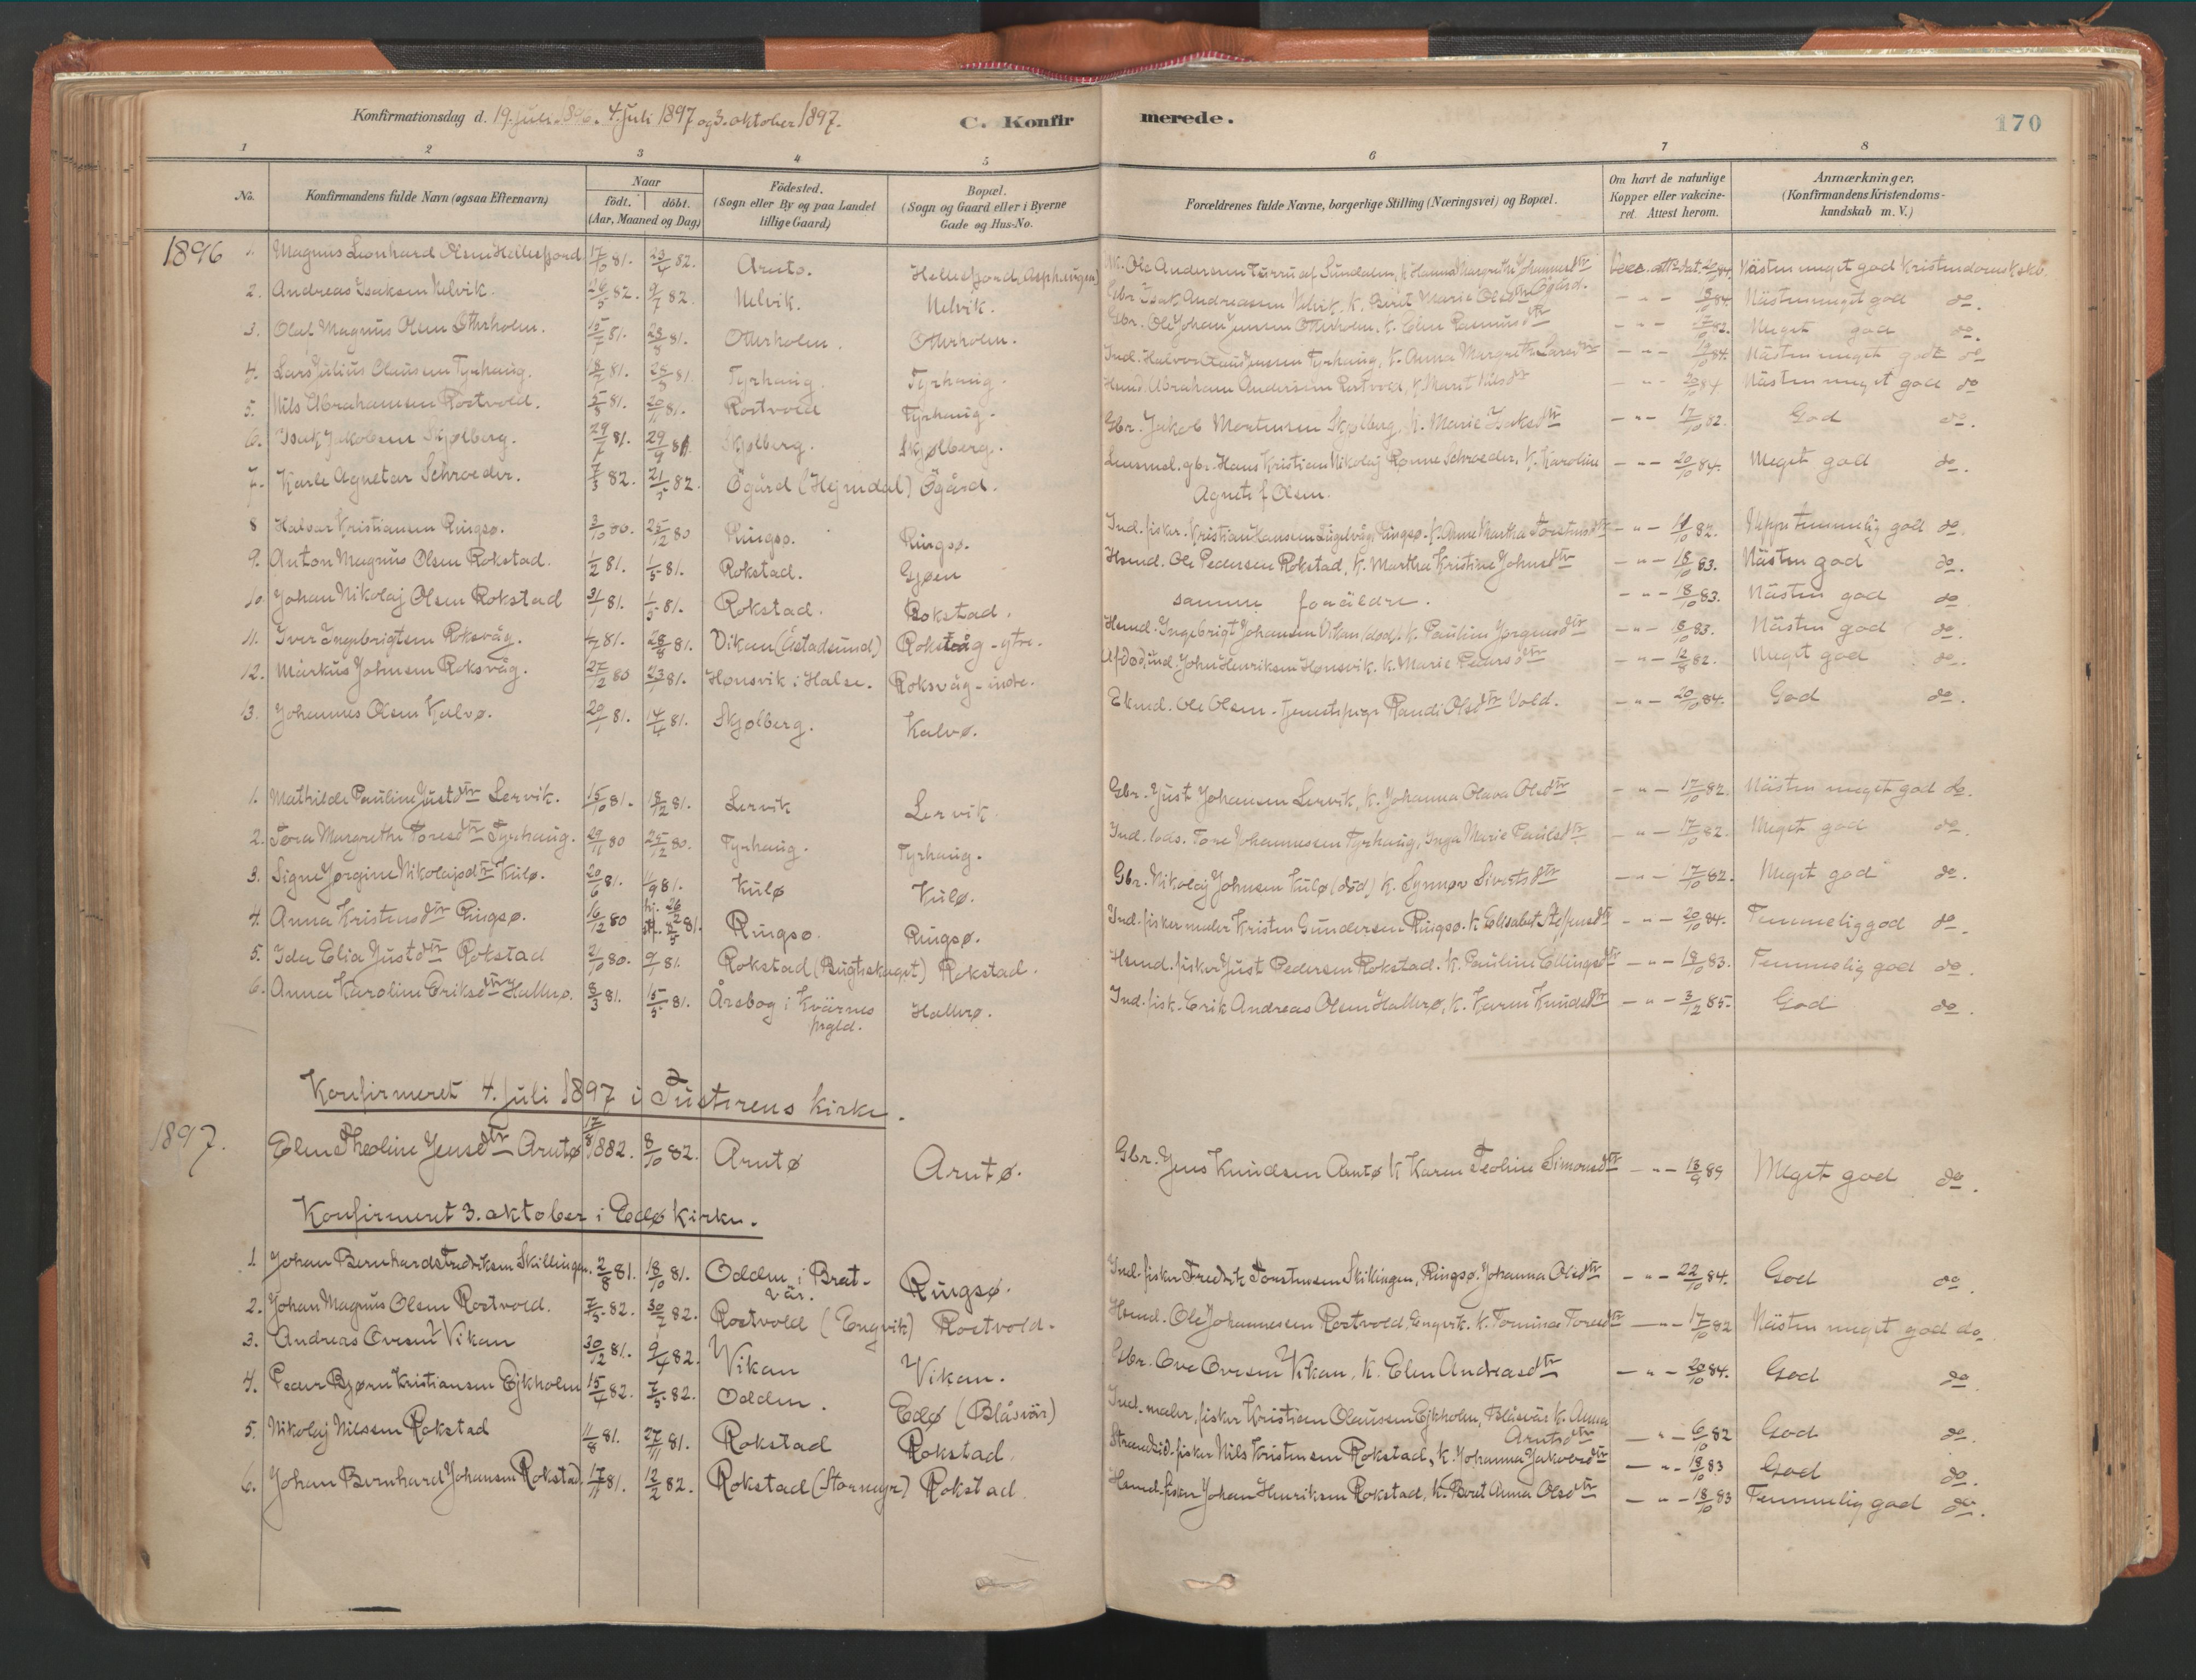 Konfirmationsdag d. 19. juli 1896. 4. juli 1897 og 3. oktober 1897. C. Konfirmerede. 170
1 2 3 4 5 6 7 8
No. Konfirmandens fulde Navn (ogsaa Efternavn) Naar födt. döbt. (Aar, Maaned og Dag) Födested. (Sogn eller By og paa Landet tillige Gaard) Bopæl. (Sogn og Gaard eller i Byerne Gade og Hus-No. Forældrenes fulde Navne, borgerlige Stilling (Næringsvei) og Bopæl. Om havt de naturlige Kopper eller vakcineret. Attest herom. Anmærkninger. (Konfirmandens Kristendomskundskab m. V.)
1896 1. Magnus Leonhard Olsen Hellesfjord 17/10 81. 23/4 82. Arnto. Hellesfjord, Asphaugen) Ole Andersen af Sundalen, k. Hanna Margrethe 20/10 84. Nästen meget god Kristendomskskb.
2. Andreas Isaksen Nelvik. 26/5 82. 9/7 82. Nelvik. Nelvik. Gbr. Isak Andreasen Nelvik, k. Beret Marie Olsdtr Ögård. – " – 84. Nästen meget god do.
3. Olaf Magnus Olsen Otterholm. 15/7 81. 28/8 81. Otterholm. Otterholm. Gbr. Ole Johan Jensen Otterholm, k. Elen Rasmusdtr – " – 82. Meget god do.
4. Lars Julius Olausen Tyrhaug. 18/7 81. 81. Tyrhaug. Tyrhaug. Ind. Halvor Olaus Jensen Tyrhaug, k. Anna Margrethe Larsdtr – " – 84. Nästen meget god do
5. Nils Abrahamsen Rostvold. 5/8 81. 20/11 81. Rostvold Tyrhaug. Husmd. Abraham Andersen Rostvold, k. Marit Nilsdtr – " – 20/10 84 Nästen meget god do
6. Isak Jakobsen Skjølberg. 29/7 81. 29/9 81. Skjølberg. Skjølberg. Gbr. Jakob Mortensen Skjølberg, k. Marie Isaksdtr – " – 17/10 82. God do.
7. Karle Agnetar Schroeder. 7/3 82. 21/5 82. Ögård (Hejmdal) Ögård. Lensmd. gbr. Hans Kristian Nikolaj Rønne Schroeder, k. Karoline – " – 20/10 84. Meget god do.
Agnete f. Olsen.
8 Halvar Kristiansen Ringsø. 3/10 80. 25/12 80 Ringsø. Ringsø. Ind. fisker. Kristian Hansen Ringsø. k. Anne Martha – " – 82. Neppe temmelig god do.
9. Anton Magnus Olsen Rokstad. 1/2 81. 1/5 81. Rokstad. Gjøen Husmd. Ole Pedersen Rokstad, k. Martha Kristine Johnsdtr – " – 18/10 83. Nästen god do.
10. Johan Nikolaj Olsen Rokstad 31/1 81. 1/5 81. Rokstad. Rokstad. samme forældre. – " – 18/10 83. Nästen god do
11. Iver Ingebrigtsen Roksvåg. 4/7 81. 28/8 81. Vikan (Åstadsund) Roksvåg – ytre. Husmd. Ingebrigt Johansen Vikan (död) k. Pauline Jørgensdtr – " – 83. Nästen god do.
12. Markus Johnsen Roksvåg. 27/12 80 23/1 81. Honsvik i Halse. Roksvåg – indre. Afdød ind. John Henriksen Honsvik. k. Marie Pedersdtr – " – 12/8 82. Meget god do.
13. Johannes Olsen Kalvø. 29/1 81. 14/4 81. Skjølberg. Kalvø. Ekmd. Ole Olsen. Tjenestepige Randi Olsdtr Vold. – " – 20/10 84. God do.
1. Mathilde Pauline Justdtr Lervik. 15/10 81. 18/12 81. Lervik Lervik. Gbr. Just Johansen Lervik, k. Johanna Olava Olsdtr – " – 17/10 82. Nästen meget god do.
2. Tora Margrethe Toresdtr Tyrhaug. 29/11 80 25/12 80. Tyrhaug. Tyrhaug. Ind. lods. Tore Johannessen Tyrhaug, Inga Marie Paulsdtr – " – 17/10 82. Meget god do.
3. Signe Jørgine Nikolajsdtr Kulø. 20/6 81. 11/9 81. Kulø Kulø. Gbr. Nikolaj Johnsen Kulø (død) k. Synnøv Sivertsdtr – " – 17/10 82. Meget god do.
4. Anna Kristensdtr Ringsø. 16/12 80 hj. 26/2 st. 8/5 81. Ringsø. Ringsø. Ind. fisker maler Kristen Gundersen Ringsø. k. Elisabet Steffensdtr – " – 20/10 84. Temmelig god do.
5. Ida Elia Justdtr Rokstad 21/10 80. 9/1 81. Rokstad (Bugtiskaget) Rokstad. Husmd. fisker Just Pedersen Rokstad. k. Pauline Ellingsdtr – " – 18/10 83. Temmelig god do.
6. Anna Karoline Eriksdtr Hallerø. 8/3 81. 15/5 81. Årsbog i Kvärnes prgld. Hallerø. Ind. fisk. Erik Andreas Olsen Hallerø, k. Karen Knudsdtr – " – 3/12 85. God do.
Konfirmeret 4. juli 1897 i Tusterens kirke.
1897. Elen Theoline Jensdtr Arntø 17/8 1882. 8/10 82. Arntø Arntø. Gbr. Jens Knudsen Arntø k. Karen Teoline Simonsdtr – " – 13/9 89 Meget god do.
Konfirmeret 3. oktober i Edø kirke.
1. Johan Bernhard Fredriksen Skillingen. 2/8 81. 18/10 81. Odden i Bratvär. Ringsø. Ind. fisker Fredrik Torstensen Skillingen, Ringsø. Johanna Olsdtr – " – 22/10 84. God do.
2. Johan Magnus Olsen Rostvold. 7/5 82. 30/7 82. Rostvold (Engvik) Rostvold. Husmd. Ole Johannesen Rostvold, Engvik. k. Tomina Toresdtr – " – 17/10 82 Nästen meget god do.
3. Andreas Ovesen Vikan 30/12 81. 9/4 82. Vikan Vikan. Gbr. Ove Ovesen Vikan, k. Elen Andreasdtr – " – 20/10 84. God do
4. Peder Bjørn Kristiansen Ejkholm 15/4 82. 7/5 82. Odden. Edø (Blåsvär) Ind. maler, fisker Kristian Olaussen Ejkholm, Blåsvär k. Anna Arntsdtr – " – 6/10 82 God do.
5. Nikolaj Nilssen Rokstad 11/8 81. 27/11 81. Rokstad Rokstad. Strandsid. fisker Nils Kristensen Rokstad, k. Johanna Jakobsdtr – " – 18/10 83 God do.
6. Johan Bernhard Johansen Rokstad. 17/11 81. 12/2 82. Rokstad (Stormyr) Rokstad. Husmd. fisker Johan Henriksen Rokstad, k. Beret Anna Olsdtr – " – 18/10 83 Temmelig god do.